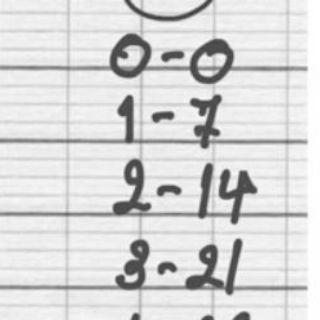 0 - 0
1 - 7
2 - 14
3 - 21